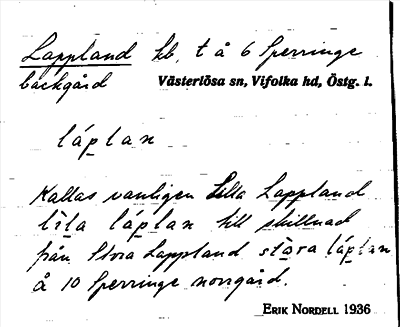 Lappland kb, t å 6 Sperringe
backgård Västerlösa sn, Vifolka hd, Östg. l.
láplan
Kallas vanligen Lilla Lappland
lita láplan till skillnad
från Stora Lappland stora láplan
å 10 Sperringe norrgård.
ERIK NORDELL 1936